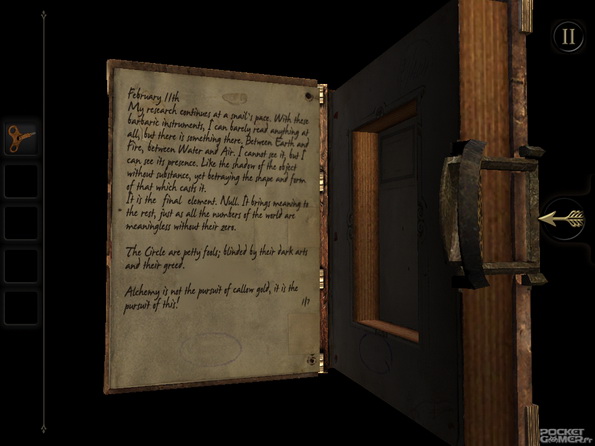 February 11th
My research continues at a snail's pace. With these
barbaric instruments, I can barely read anything at
all, but there is something there. Between Earth and
Fire, between Water and Air. I cannot see it, but I
can see its presence. Like the shadow of the object
without substance, yet betraying the shape and form
of that which casts it.
It is the final element. Null. It brings meaning to
the rest, just as all the numbers of the world are
meaningless without their zero.
The Circle are petty fools; blinded by their dark arts
and their greed.
Alchemy is not the pursuit of callow gold, it is the
pursuit of this!
1/9
POCKET
GAMER.FR